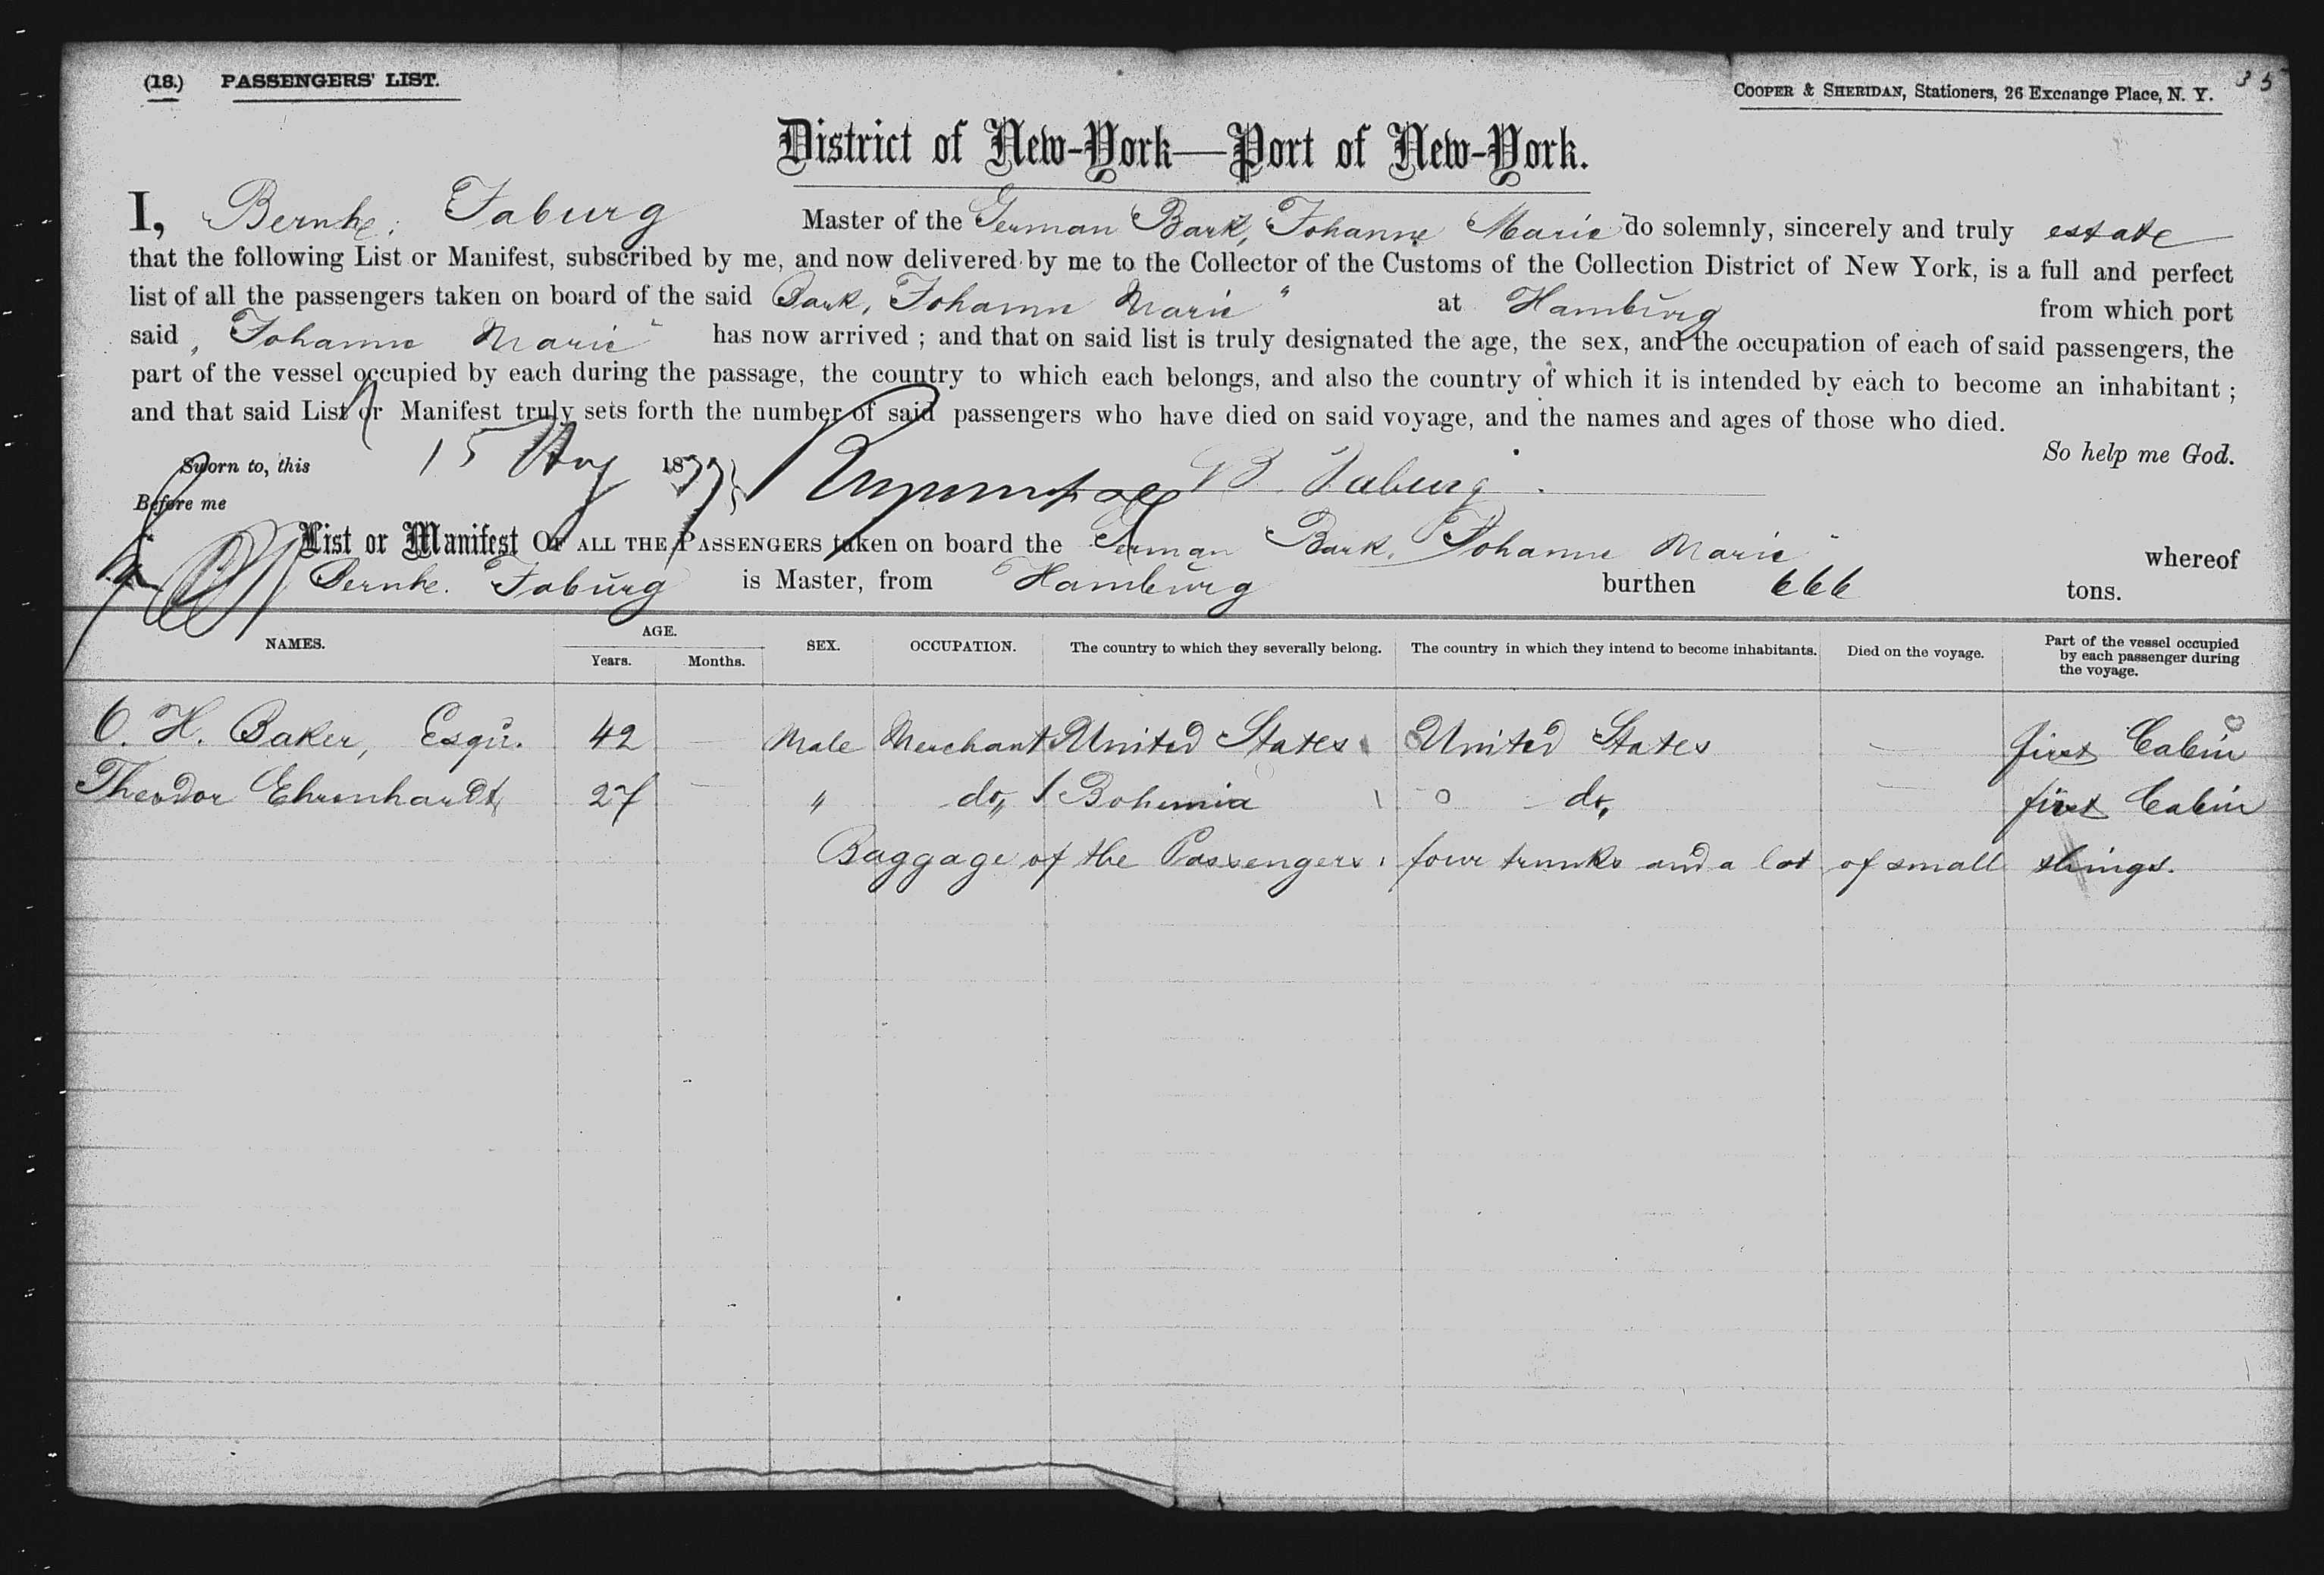 (18.) PASSENGERS' LIST.
COOPER & SHERIDAN, Stationers, 26 Exchange Place, N. Y.
35
District of New-York—Port of New-York.
I, Bernhe. Faburg Master of the German Bark, Johanne Marie" do solemnly, sincerely and truly estate
that the following List or Manifest, subscribed by me, and now delivered by me to the Collector of the Customs of the Collection District of New York, is a full and perfect
list of all the passengers taken on board of the said Bark, Johanne Marie" at Hamburg from which port
said „Johanne Marie" has now arrived ; and that on said list is truly designated the age, the sex, and the occupation of each of said passengers, the
part of the vessel occupied by each during the passage, the country to which each belongs, and also the country of which it is intended by each to become an inhabitant ;
and that said List or Manifest truly sets forth the number of said passengers who have died on said voyage, and the names and ages of those who died.
So help me God.
Sworn to, this 15 Aug 1877 B. Faburg.
Before me
List or Manifest OF ALL THE PASSENGERS taken on board the German Bark, Johanne Marie" whereof
Bernhe. Faburg is Master, from Hamburg burthen 666 tons.
NAMES. AGE. Years. Months. SEX. OCCUPATION. The country to which they severally belong. The country in which they intend to become inhabitants. Died on the voyage. Part of the vessel occupied by each passenger during the voyage.
O. H. Baker, Esqu. 42 — Male Merchant United States United States — first Cabin
Theodor Ehrenhardt 27 — " do„ Bohemia do, — first Cabin
Baggage of the Passengers, four trunks and a lot of small things.